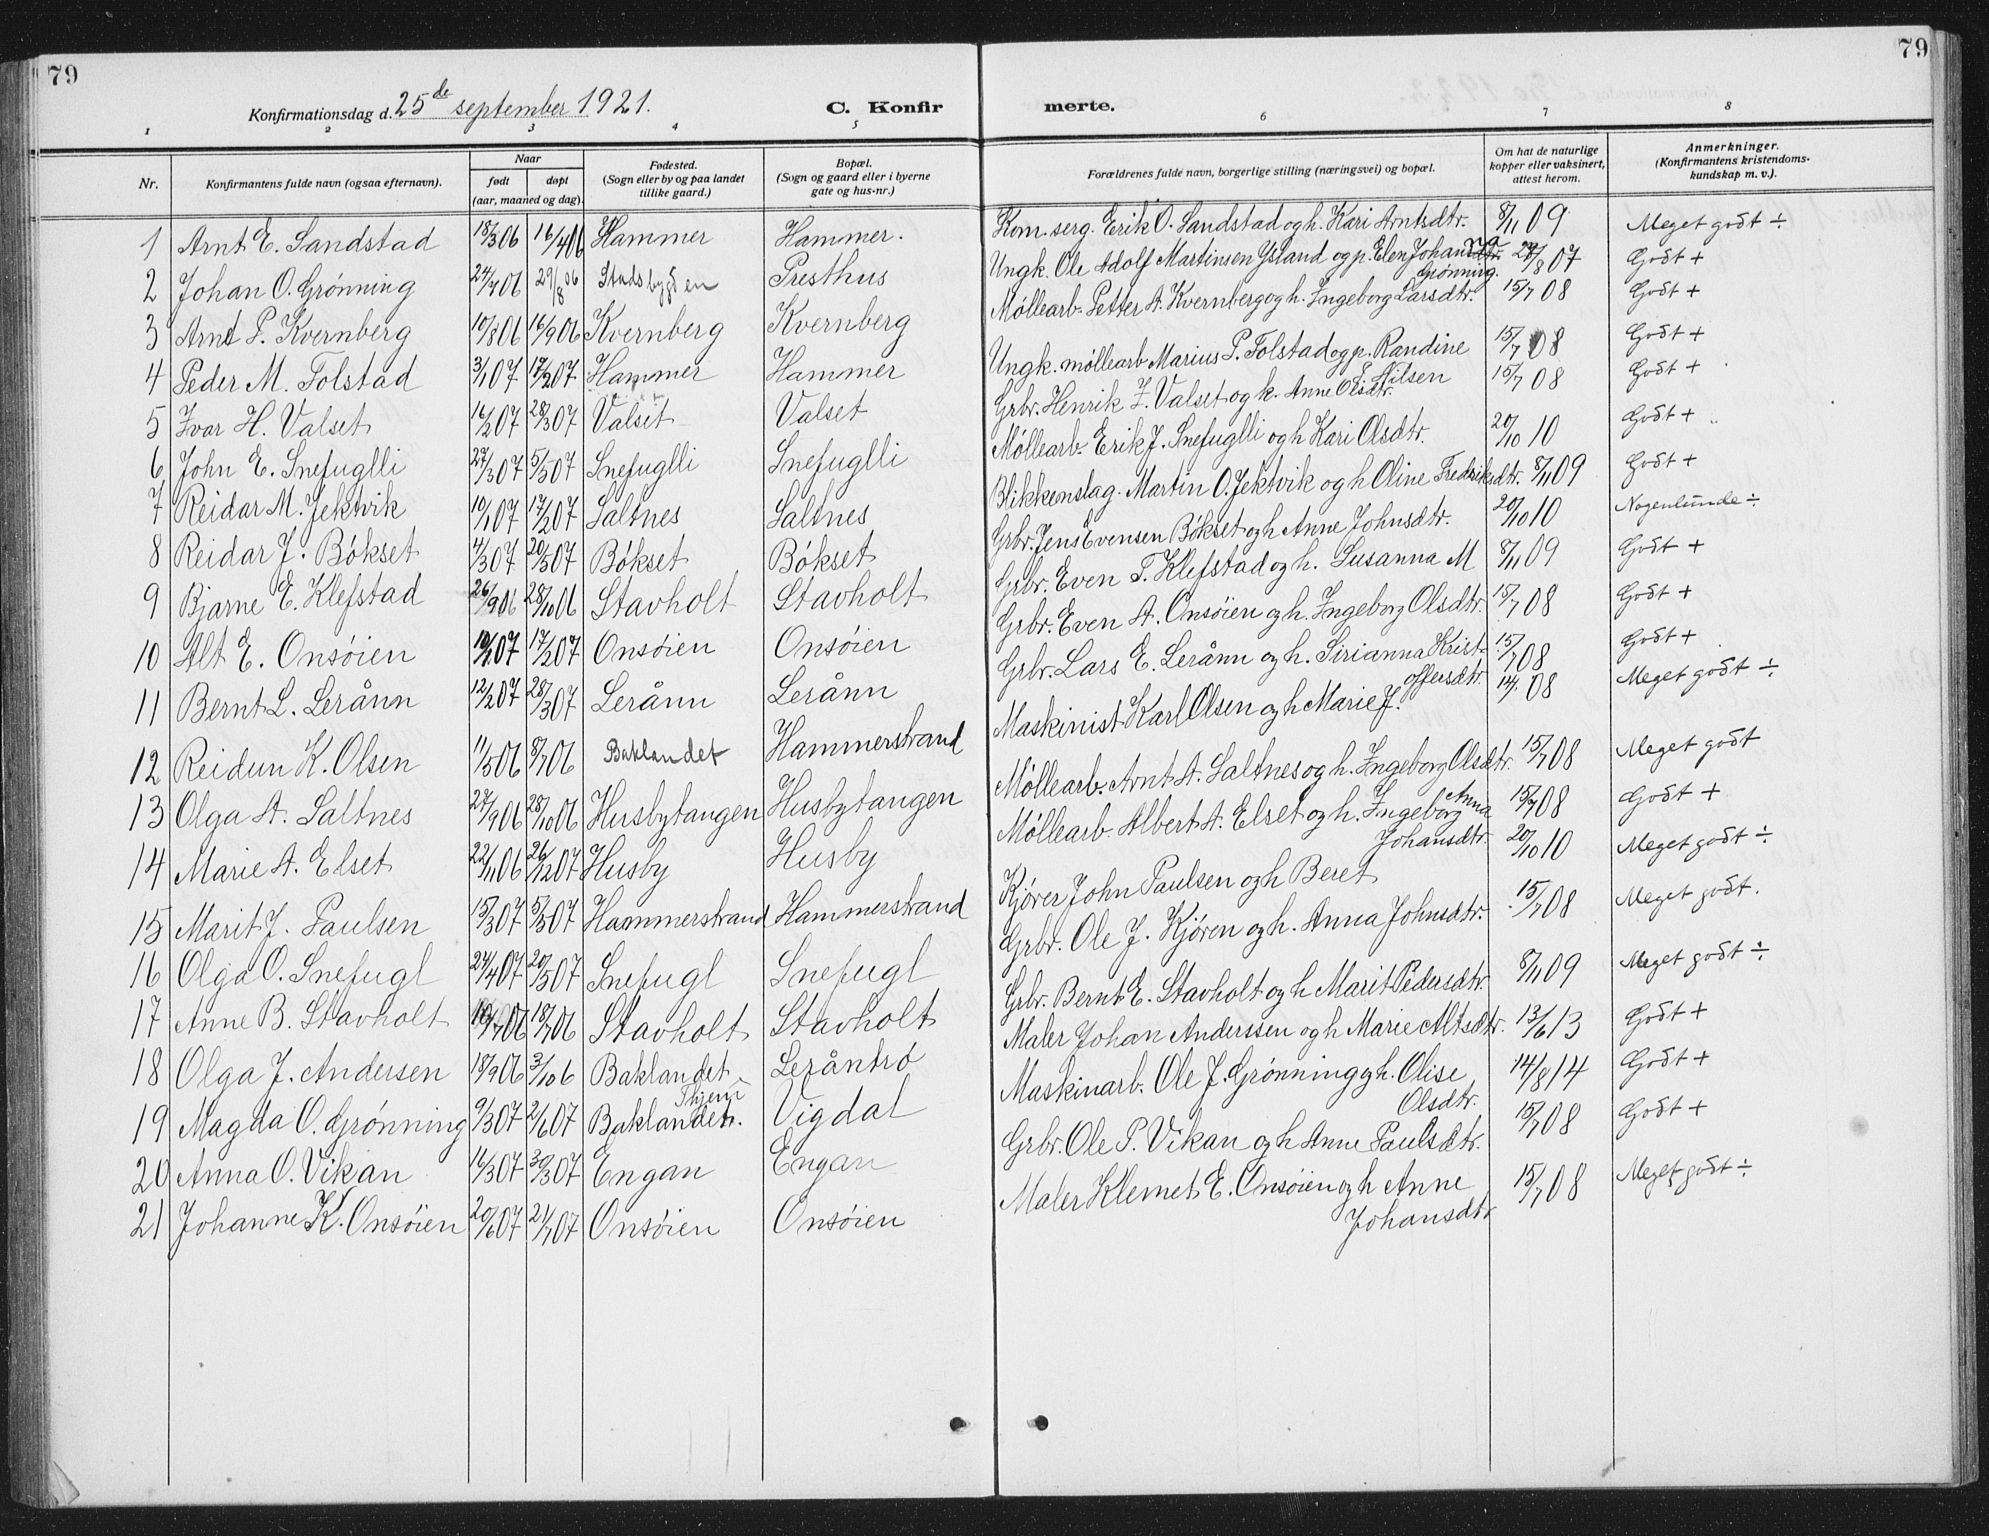 79
79
Konfirmationsdag d. 25de september 1921.
C. Konfir
merte.
1 2 3 4 5 6 7 8
Nr.
Konfirmantens fulde navn (ogsaa efternavn).
Naar
født døpt
(aar, maaned og dag).
Fødested.
(Sogn eller by og paa landet
tillike gaard.)
Bopæl.
(Sogn og gaard eller i byerne
gate og hus-nr.)
Forældrenes fulde navn, borgerlige stilling (næringsvei) og bopæl.
Om hat de naturlige
kopper eller vaksinert,
attest herom.
Anmerkninger.
(Konfirmantens kristendoms-
kundskap m. v.).
1 Arnt E. Sandstad 18/3 06 16/4 06 Hammer Hammer. Kom. serg. Erik O. Sandstad og h. Kari Arntsdtr. 8/11 09 Meget godt ÷
2 Johan O. Grønning 24/7 06 29/8 06 Stadsbygden Presthus Ungk. Ole Adolf Martinsen Ysland og p. Elen Johansdtr. Grønning. 24/8 07 Godt +
3 Arnt P. Kvernberg 10/8 06 16/9 06 Kvernberg Kvernberg Møllearb. Petter A. Kvernberg og h. Ingeborg Larsdtr. 15/7 08 Godt +
4 Peder M. Folstad 3/1 07 17/2 07 Hammer Hammer Ungk. møllearb Marius P. Folstad og p. Randine Nilsen 15/7 08 Godt +
5 Ivar H. Valset 16/2 07 28/3 07 Valset Valset Grbr. Henrik I. Valset og k. Anne Olsdtr. 15/7 08 Godt +
6 John E. Snefuglli 27/3 07 5/5 07 Snefuglli Snefuglli Møllearb. Erik J. Snefuglli og h Kari Olsdtr. 20/10 10 Godt +
7 Reidar M. Jektvik 10/1 07 17/2 07 Saltnes Saltnes Blikkenslag. Martin O. Jektvik og h Oline Fredriksdtr. 8/11 09 Godt +
8 Reidar J. Bökset 4/3 07 20/5 07 Bökset Bökset Grbr. Jens Evensen Bökset og h Anne Johnsdtr. 20/10 10 Nogenlunde ÷
9 Bjarne E. Klefstad 26/9 06 28/10 06 Stavholt Stavholt Grbr. Even T. Klefstad og h. Susanna M 8/11 09 Godt +
10 Alt E. Onsöien 07 17/2 07 Onsöien Onsöien Grbr. Even A. Onsöien og h. Ingeborg Olsdtr. 15/7 08 Godt +
11 Bernt L. Lerånn 12/2 07 28/3 07 Lerånn Lerånn Grbr. Lars E. Lerånn og h. Sirianna Krist-
offersdtr. 15/7 08 Godt +
12 Reidun K. Olsen 11/5 06 8/7 06 Baklandet Hammerstrand Maskinist Karl Olsen og h Marie J. 08 Meget godt ÷
13 Olga A. Saltnes 27/9 06 28/10 06 Husbytangen Husbytangen Møllearb. Arnt A. Saltnes og h. Ingeborg Olsdtr. 15/7 08 Meget godt
14 Marie A. Elset 22/11 06 26/12 07 Husby Husby Møllearb. Albert A. Elset og h. Ingeborg Anna
Johansdtr. 15/7 08 Godt +
15 Marit J. Paulsen 15/3 07 5/5 07 Hammerstrand Hammerstrand Kjörer John Paulsen og h Beret 20/10 10 Meget godt ÷
16 Olga O. Snefugl 24/4 07 20/5 07 Snefugl Snefugl Grbr. Ole J. Kjören og h. Anna Johnsdtr. 15/7 08 Meget godt.
17 Anne B. Stavholt 06 18/7 06 Stavholt Stavholt Grbr. Bernt E. Stavholt og h Marit Pedersdtr 8/11 09 Meget godt ÷
18 Olga J. Andersen 18/9 06 3/10 6 Baklandet Leråntrö Maler Johan Anderssen og h Marie Altsdtr. 13/6 13 Godt +
19 Magda O. Grønning 9/3 07 2/6 07 Baklandet. Vigdal Maskinarb. Ole J. Grønning og h. Olise
Olsdtr. 14/8 14 Godt +
20 Anna O. Vikan 16/3 07 30/3 07 Engan Engan Grbr. Ole P. Vikan og h Anne Paulsdtr. 15/7 08 Godt +
21 Johanne K. Onsöien 20/6 07 21/7 07 Onsöien Onsöien Maler Klemet E. Onsöien og h Anne
Johansdtr 15/7 08 Meget godt ÷